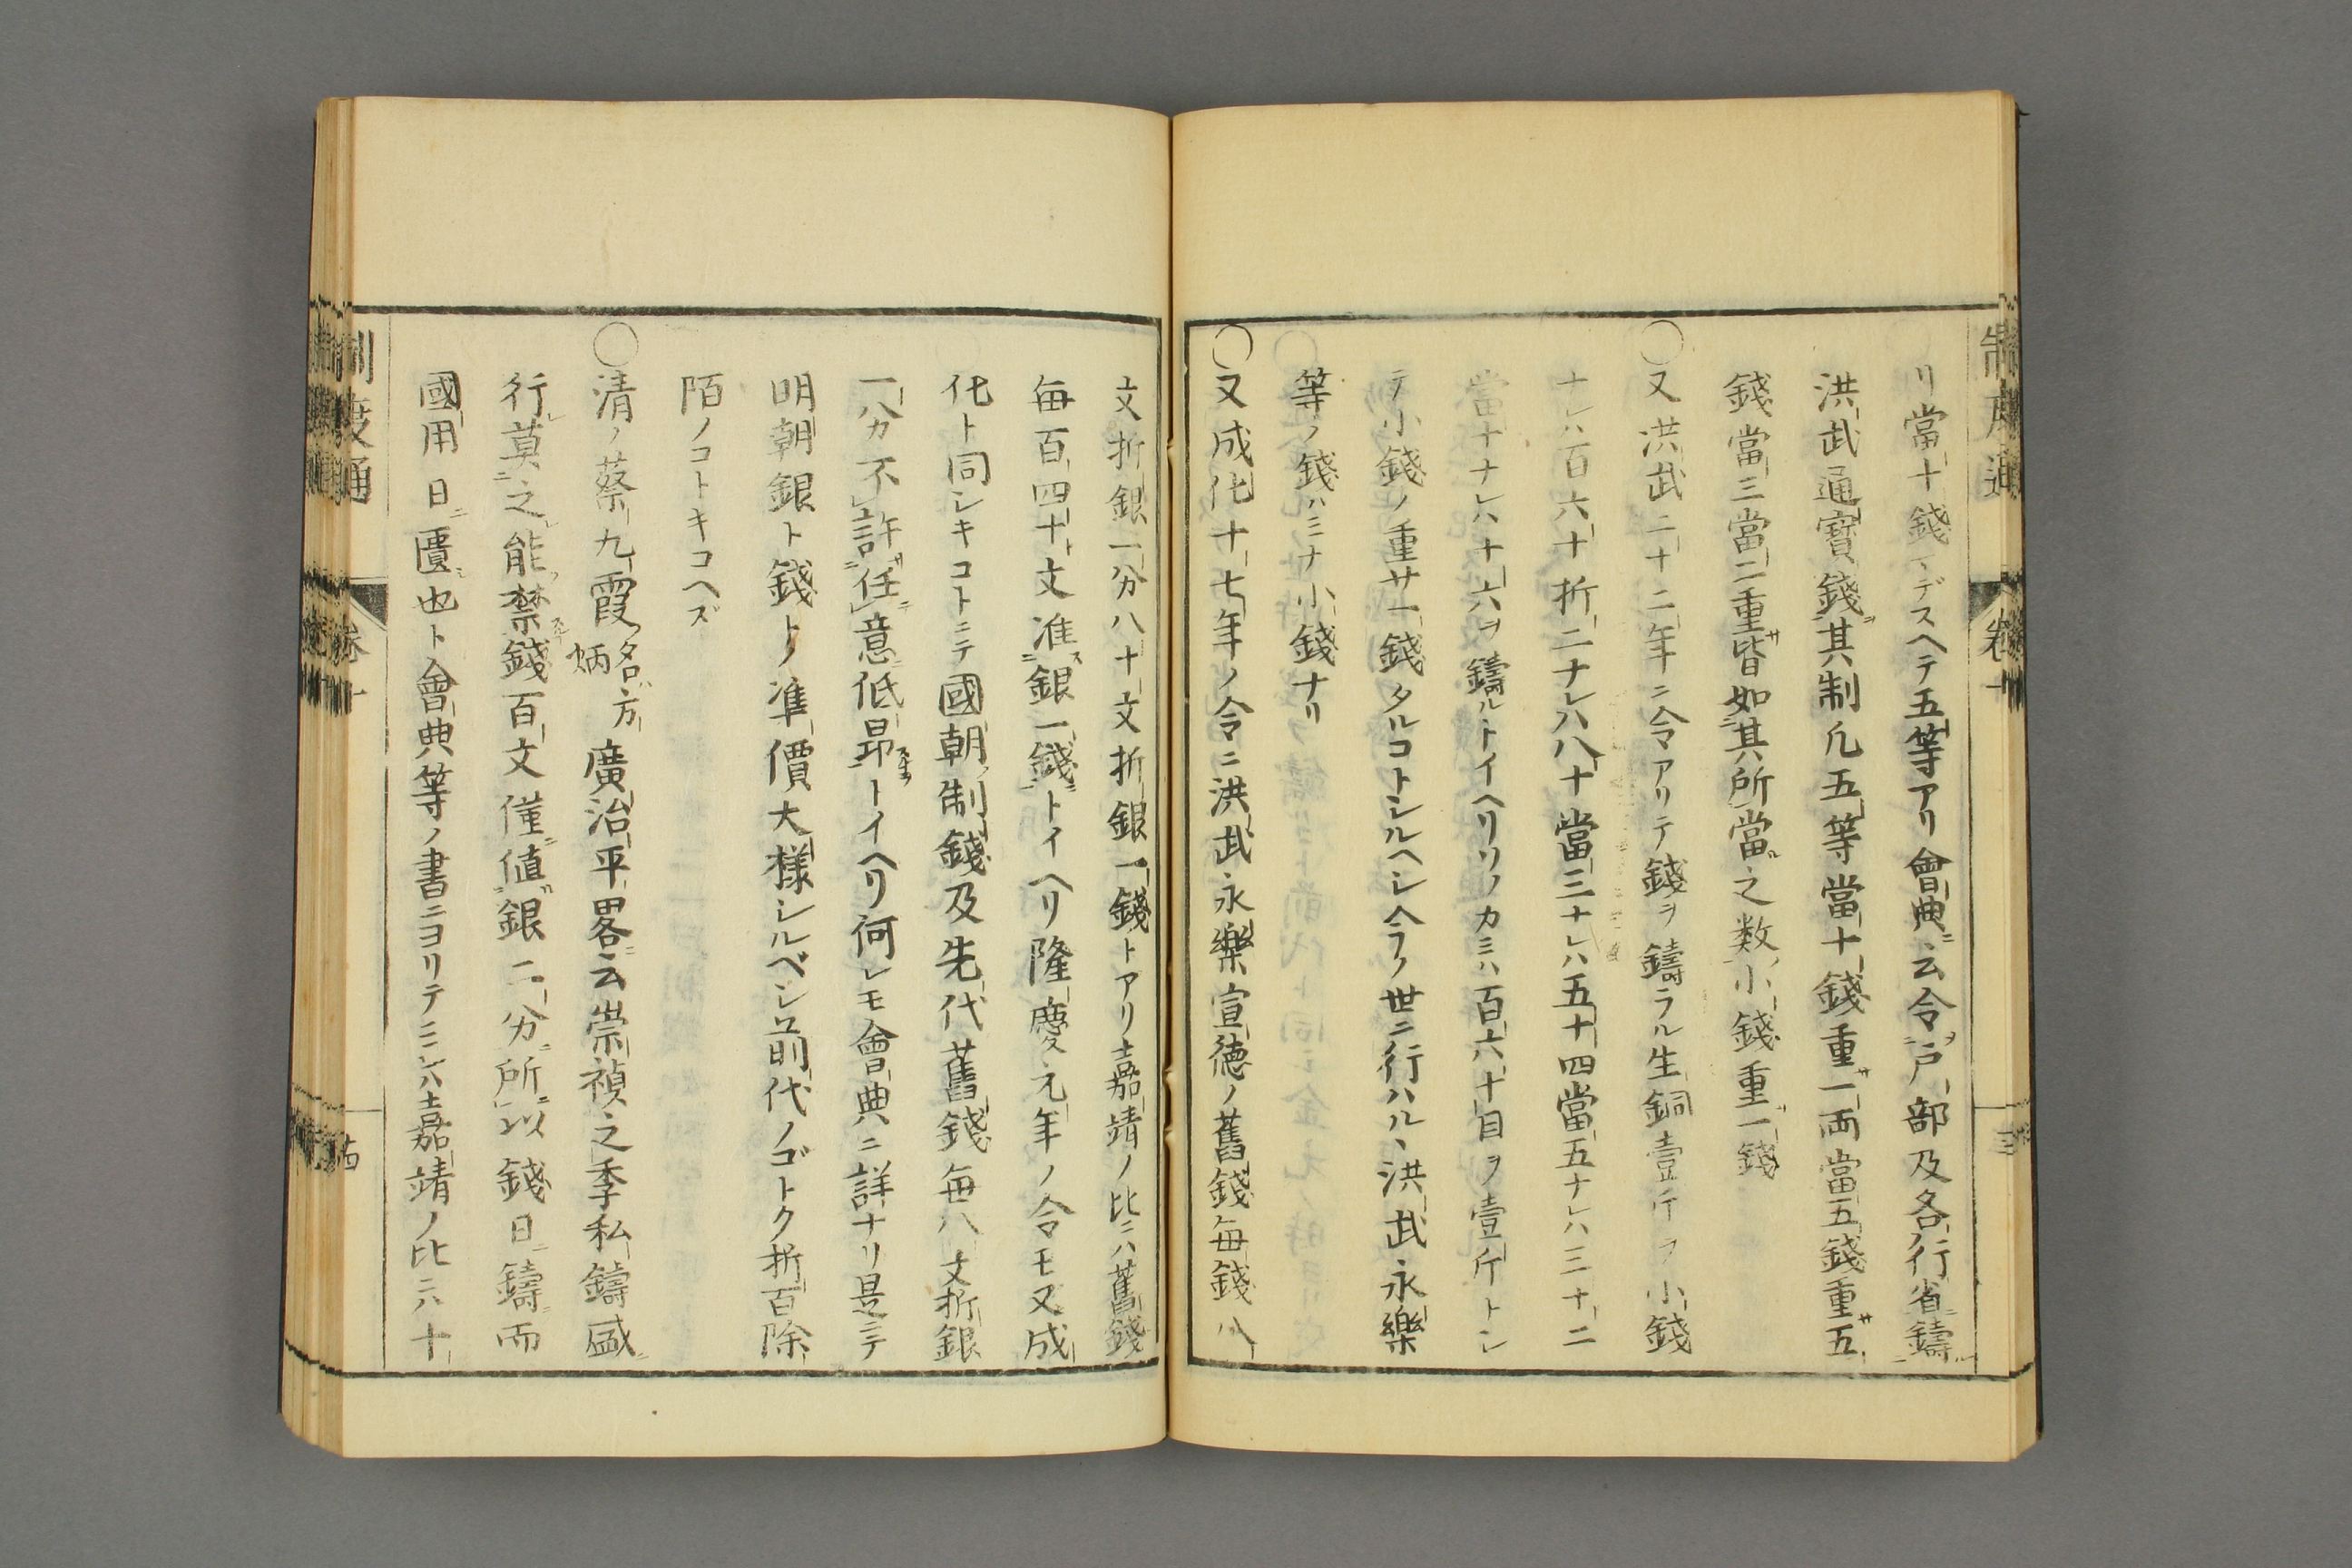 制度通
卷十
リ當十錢マデスヘテ五等アリ會典ニ云令戸部及各行省鑄
洪武通寶錢其制凢五等當十錢重一両當五錢重五
錢當三當二重皆如其所當之数小錢重一錢
〇又洪武二十二年ニ令アリテ錢ヲ鑄ラル生銅壹斤ヲ小錢
ナレハ百六十折二ナレハ八十當三ナレハ五十四當五ナレハ三十二
當十ナレハ十六ヲ鑄ルトイヘリソノカミハ百六十目ヲ壹斤トシ
テ小錢ノ重サ一錢タルコトシルヘシ今ノ世ニ行ハルヽ洪武永樂
等ノ錢ハミナ小錢ナリ
〇又成化十七年ノ令ニ洪武永樂宣徳ノ舊錢毎錢八
文折銀一分八十文折銀一錢トアリ嘉靖ノ比ニハ舊錢
毎百四十文准銀一錢トイヘリ隆慶元年ノ令モ又成
化ト同シキコトニテ國朝制錢及先代舊錢毎八文折銀
一八分不許任意低昻トイヘリ何レモ會典ニ詳ナリ是ニテ
明朝銀ト錢トノ準價大様シルベシ前代ノゴトク折百除
陌ノコトキコヘズ
〇清ノ蔡九霞名ハ方炳廣治平畧云崇禎之季私鑄盛
行莫之能禁錢百文僅値銀二分所以錢日鑄而
國用日匱也ト會典等ノ書ニヨリテミレハ嘉靖ノ比ニハ十
制度通
卷十